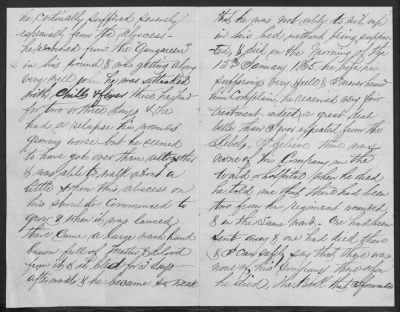 he continually suffered severely
especially from the Abscess—
he recovered from the Gangreene
in his wound & was getting along
very well when he was attacked
with Chills & fever this lasted
for two or three days & he
had a relapse his wounds
growing worse but he seemed
to have got over them
& was able to walk about a
little & then this abscess on
his shoulder commenced to
grow & when it was lanced
there came a large wash hand
bason full of matter & blood
from it & it bled for 3 days
afterwards & he became so weak
that he was not able to sit up
in his bed without being suppor
ted, & died on the morning of the
15th January 1865. he bore his
sufferings very well & I never heard
him Complain, he received very fair
treatment indeed a great deal
better than I had expected from the
Rebels, I believe there was
none of his Company in the
Ward or hospital when he died
he told me that there had been
two from the regiment wounded
& in the Same ward. One had been
sent away & one had died there
& I can safely say that there was
none of his Company there when
he died, The Boots that I